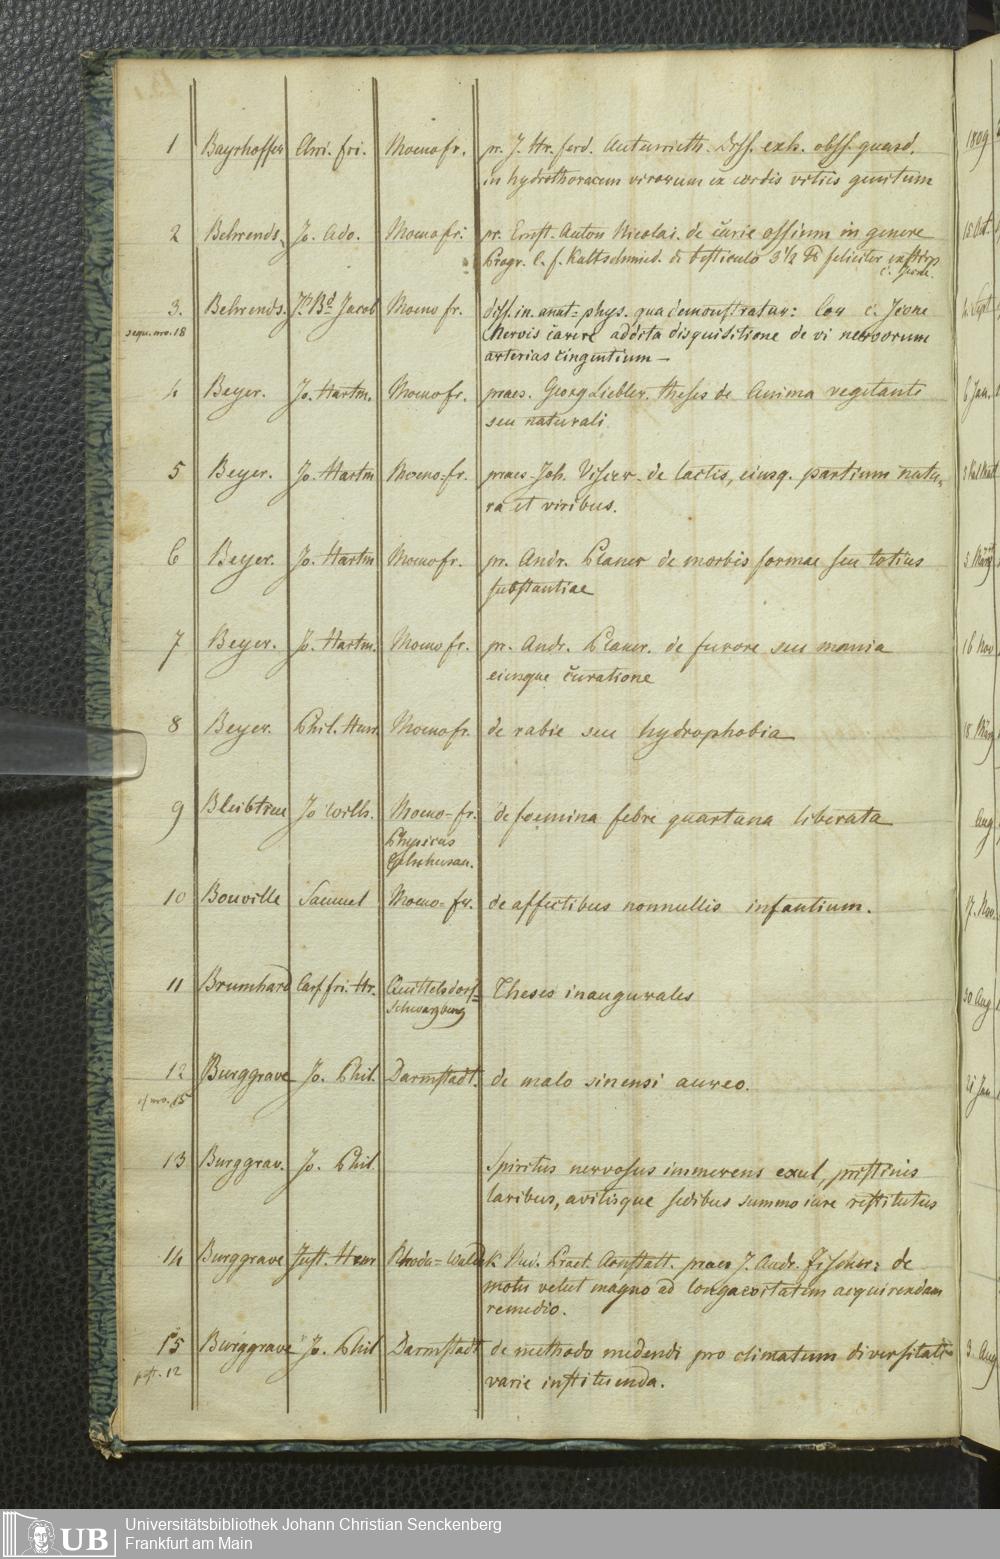 1 Bayrhoffer Chri. fri. Moenofr. pr. J. Hr. ferd. Autenrieth. Diss. exh. obss. quasd. 1809
in hydrothoracem virorum ex cordis vitiis genitum
2 Behrends, Jo. Ado. Moenofr: pr. Ernst. Anton Nicolai. de carie ossium in genere 15 Oct.
Progr. C. f. Kaltschmied. de testiculo 3 1/2 feliciter
3. Behrends. Jh. Bd. Jacob Moeno fr. diss. in. anat=phys. qua demonstratur: Cor 4. Sept
sequ. nro. 18 Nervis carere addita disquisitione de vi nervorum
arterias cingentium —
4 Beyer. Jo. Hartm. Moenofr. praes. Georg Liebler. theses de Anima vegetanti 6 Jan.
seu naturali
5 Beyer. Jo. Hartm Moeno-fr. praes Joh. Viscer. de lactis, eiusq. partium natu=
ra et viribus.
6 Beyer. Jo. Hartm Moenofr. pr. Andr. Planer de morbis formae seu totius 5 März
substantiae
7 Beyer. Jo. Hartm. Moeno fr. pr. Andr. Planer. de furore seu mania 16 Nov
eiusque curatione
8 Beyer. Phil. Henr. Moenofr. de rabie seu hydrophobia 18 März
9 Bleibtreu Jo Wilh. Moeno=fr. de foemina febre quartana liberata Aug
Physicus
Gelnhusan.
10 Bouville Samuel Moeno=fr. de affectibus nonnullis infantium. 17. Nov.
11 Brumhard Carl fri. Hr. Quittelsdorf= Theses inaugurales 30 Aug
Schwarzburg
12 Burggrave Jo. Phil. Darmstadt. de malo sinensi aureo. 21 Jan
cf nro. 15
13 Burggrav. Jo. Phil. Spiritus nervosus immerens exul, pristinis
laribus, avitisque sedibus summo iure restitutus
14 Burggrave Just. Henr Rhoda=Waldek Med. Pract. Arnstatt. praes J. Andr. Fischer: de
motu velut magno ad longaevitatem acquirendam
remedio.
15 Burggrave Jo. Phil Darmstadt de methodo medendi pro climatum diversitate 3. Aug
post. 12 varie instituenda.
UB
Universitätsbibliothek Johann Christian Senckenberg
Frankfurt am Main